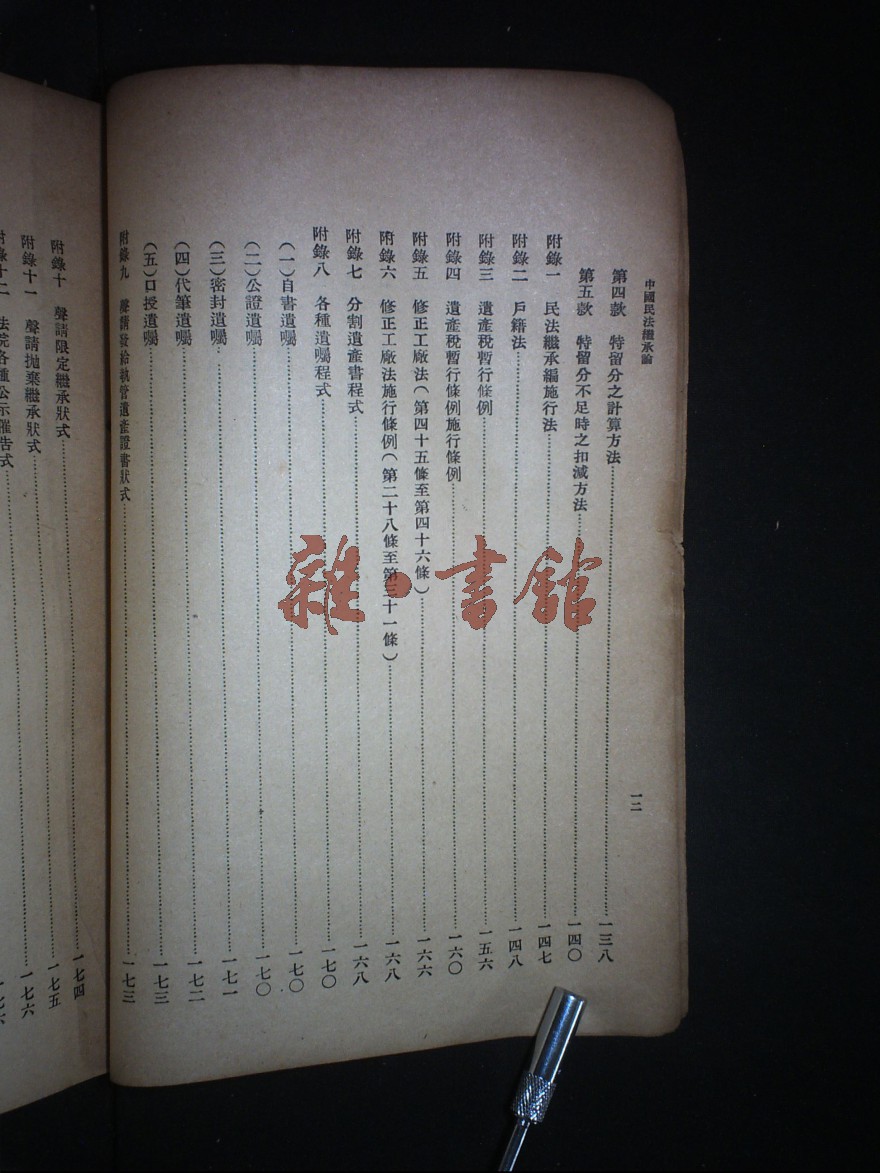 中國民法繼承論
一二
第四款　特留分之計算方法……一三八
第五款　特留分不足時之扣減方法……一四〇
附錄一　民法繼承編施行法……一四七
附錄二　戶籍法……一四八
附錄三　遺產稅暫行條例……一五六
附錄四　遺產稅暫行條例施行條例……一六〇
附錄五　修正工廠法（第四十五條至第四十六條）……一六六
附錄六　修正工廠法施行條例（第二十八條至第三十一條）……一六八
附錄七　分割遺產書程式……一六八
附錄八　各種遺囑程式……一七〇
（一）自書遺囑……一七〇
（二）公證遺囑……一七〇
（三）密封遺囑……一七一
（四）代筆遺囑……一七二
（五）口授遺囑……一七三
附錄九　聲請發給執管遺產證書狀式……一七三
附錄十　聲請限定繼承狀式……一七四
附錄十一　聲請拋棄繼承狀式……一七五
附錄十二　法院各種公示催告式……一七六
雜·書館